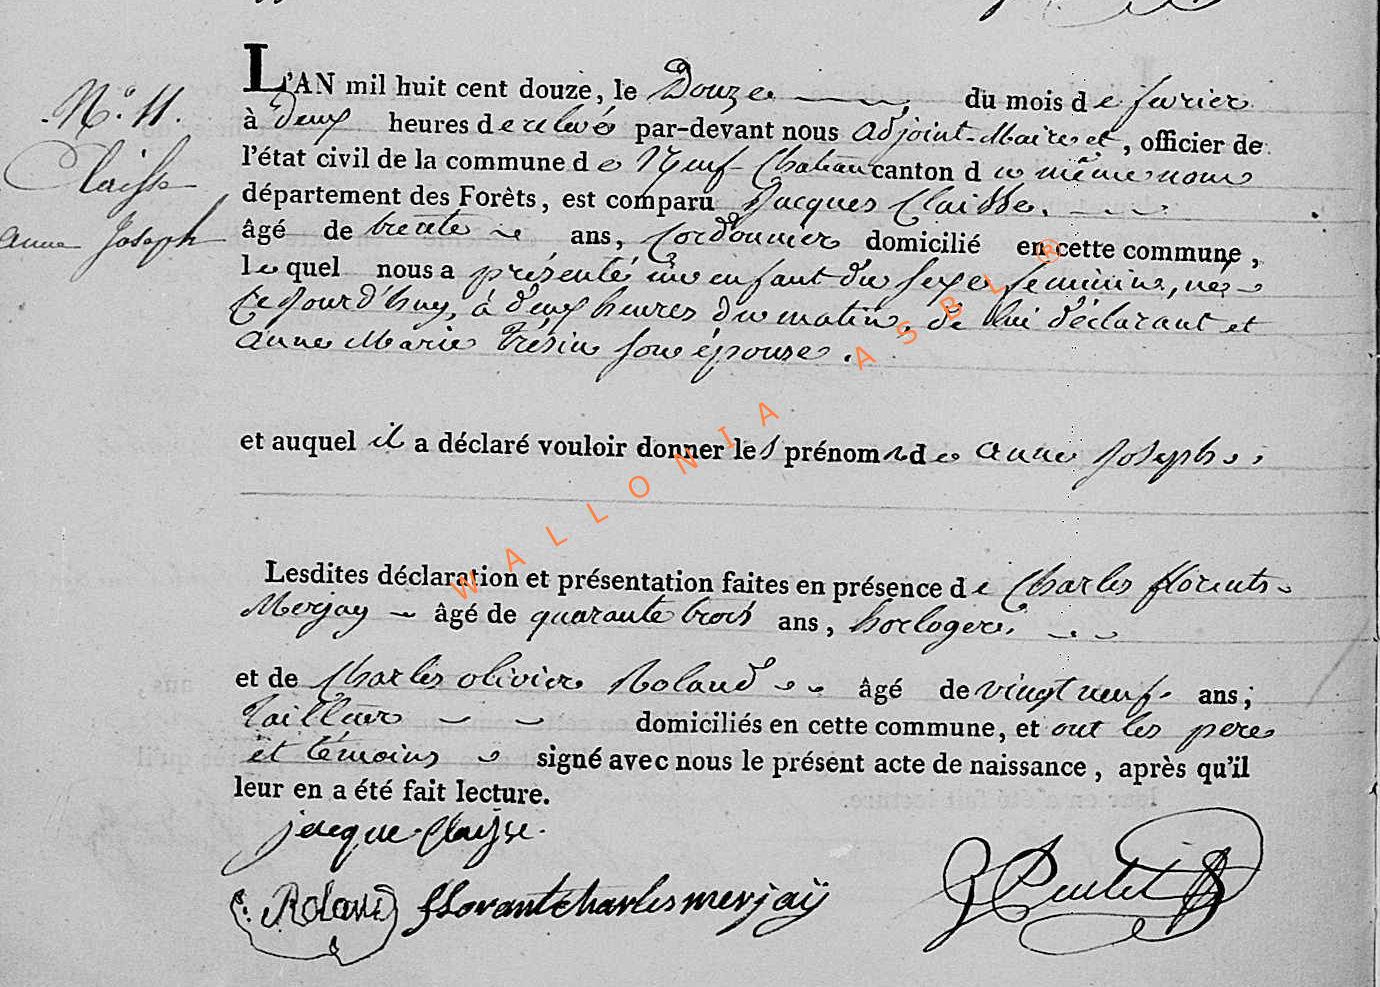 N.º 11.
Claisse
anne Joseph
L'AN mil huit cent douze, le Douze du mois de fevrier
à deux heures de relevé par-devant nous adjoint-Maire et, officier de
l'état civil de la commune de Neuf-Chateau canton du même nom
département des Forêts, est comparu Jacques Claisse.
âgé de trente ans, Cordonnier domicilié en cette commune,
lequel nous a présenté un enfant du sexe feminin, née
ce jourd'huy, à deux heures du matin, de lui déclarant et
anne Marie Trésin son épouse.
et auquel il a déclaré vouloir donner les prénoms de anne Joseph.
Lesdites déclaration et présentation faites en présence de Charles florents
Merjay âgé de quarante trois ans, horloger.
et de Charles olivier Roland âgé de vingt neuf ans;
Tailleur domiciliés en cette commune, et ont les pere
et témoins signé avec nous le présent acte de naissance, après qu'il
leur en a été fait lecture.
jacque Claysse.
Roland florant Charles merjaÿ
WALLONIA ASBL ®